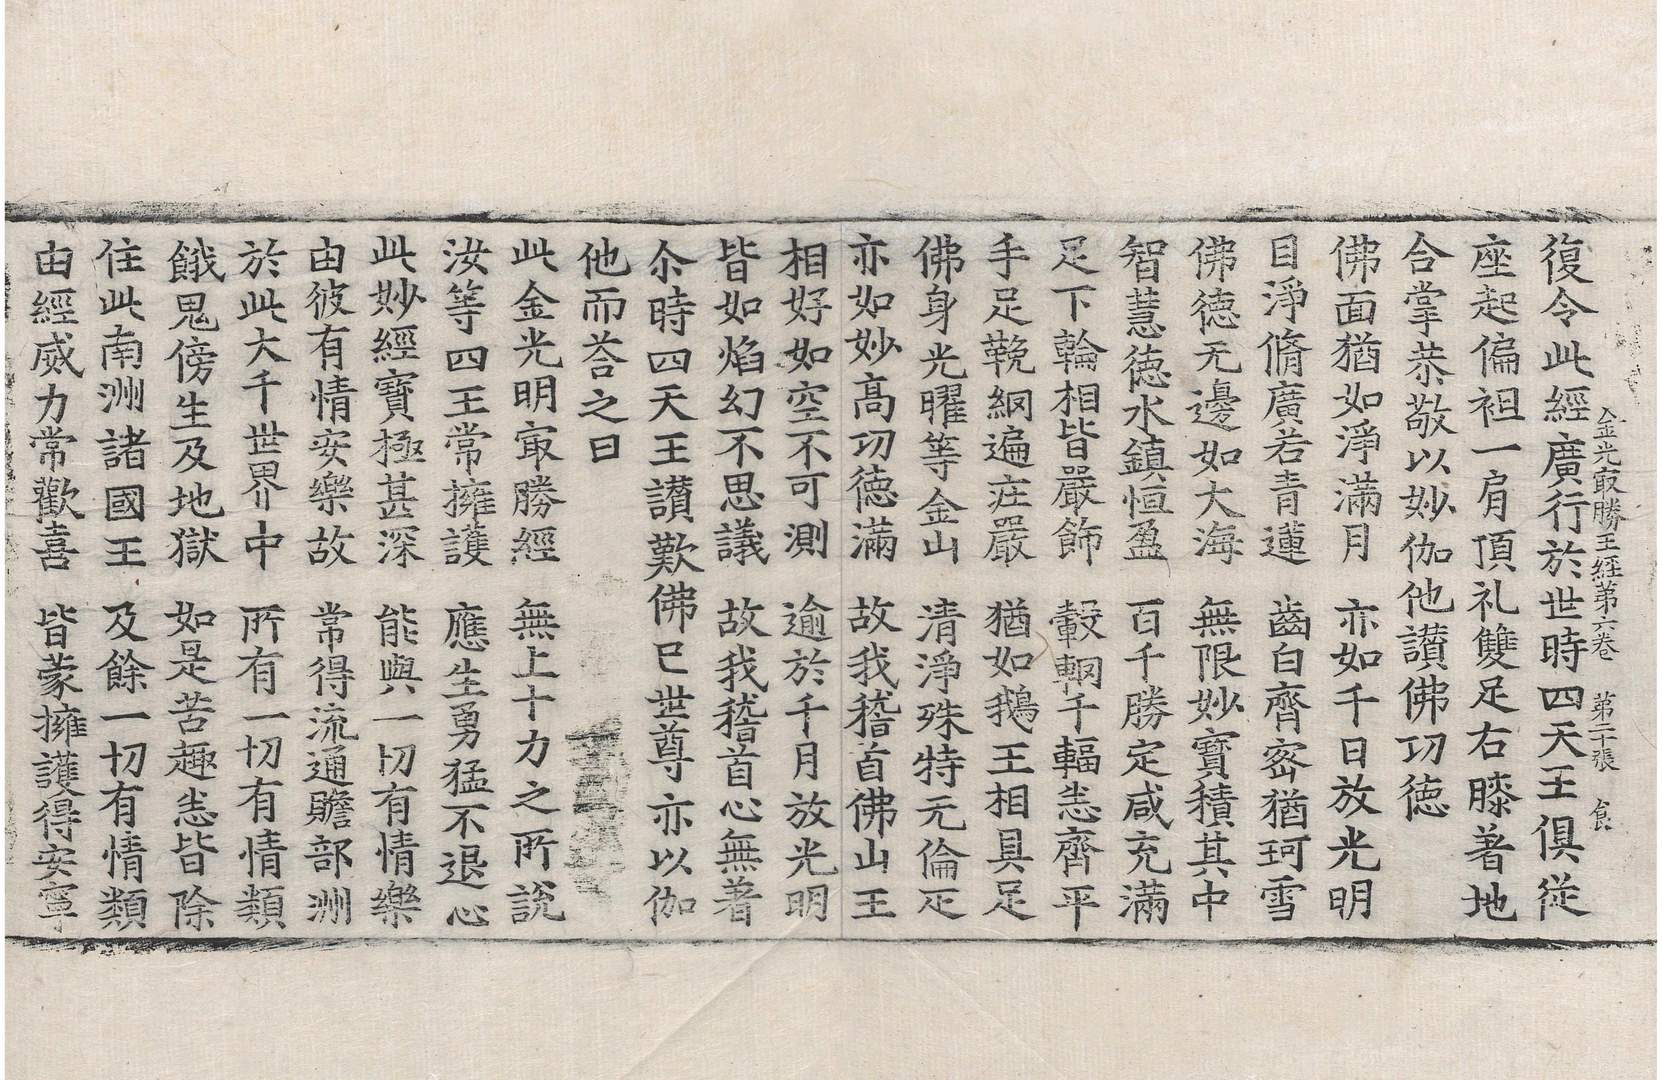 金光㝡勝王經第六卷 第二十張 食
復令此經廣行於世時四天王俱從
座起偏袒一肩頂礼雙足右膝著地
合掌恭敬以妙伽他讃佛功德
佛面猶如淨滿月 亦如千日放光明
目淨脩廣若青蓮 齒白齊密猶珂雪
佛德无邊如大海 無限妙寶積其中
智慧德水鎮恒盈 百千勝定咸充滿
足下輪相皆嚴飾 轂輞千輻悉齊平
手足鞔網遍庄嚴 猶如鵝王相具足
佛身光曜等金山 清淨殊特无倫疋
亦如妙高功德滿 故我稽首佛山王
相好如空不可測 逾於千月放光明
皆如焰幻不思議 故我稽首心無著
尒時四天王讃歎佛已世尊亦以伽
他而荅之曰
此金光明㝡勝經 無上十力之所說
汝等四王常擁護 應生勇猛不退心
此妙經寶極甚深 能與一切有情樂
由彼有情安樂故 常得流通贍部洲
於此大千世界中 所有一切有情類
餓鬼傍生及地獄 如是苦趣悉皆除
住此南洲諸國王 及餘一切有情類
由經威力常歡喜 皆蒙擁護得安寧